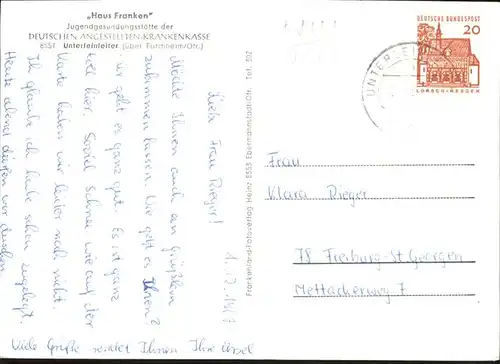 „Haus Franken"
Jugendgesundungsstätte der
DEUTSCHEN ANGESTELLTEN-KRANKENKASSE
8551 Unterleinleiter (über Forchheim/Ofr.)
Liebe Frau Rieger!
Möchte Ihnen auch ein Grüßlein
zukommen lassen. Wie geht es Ihnen?
mir geht es ganz gut. Es ist ganz
toll hier. Soviel Schnee wie auf der
Karte haben wir leider noch nicht.
Ich glaube ich habe schon zugelegt.
Heute abend dürfen wir duschen.
Viele Grüße sendet Ihnen Ihre Ursel
Frankenland-Fotoverlag Heinz 8553 Ebermannstadt/Ofr. Tel. 852
UNTERLEIN
DEUTSCHE BUNDESPOST
20
LORSCH/HESSEN
Frau
Klara Rieger
78 Freiburg-St. Georgen
Mettackerweg 7